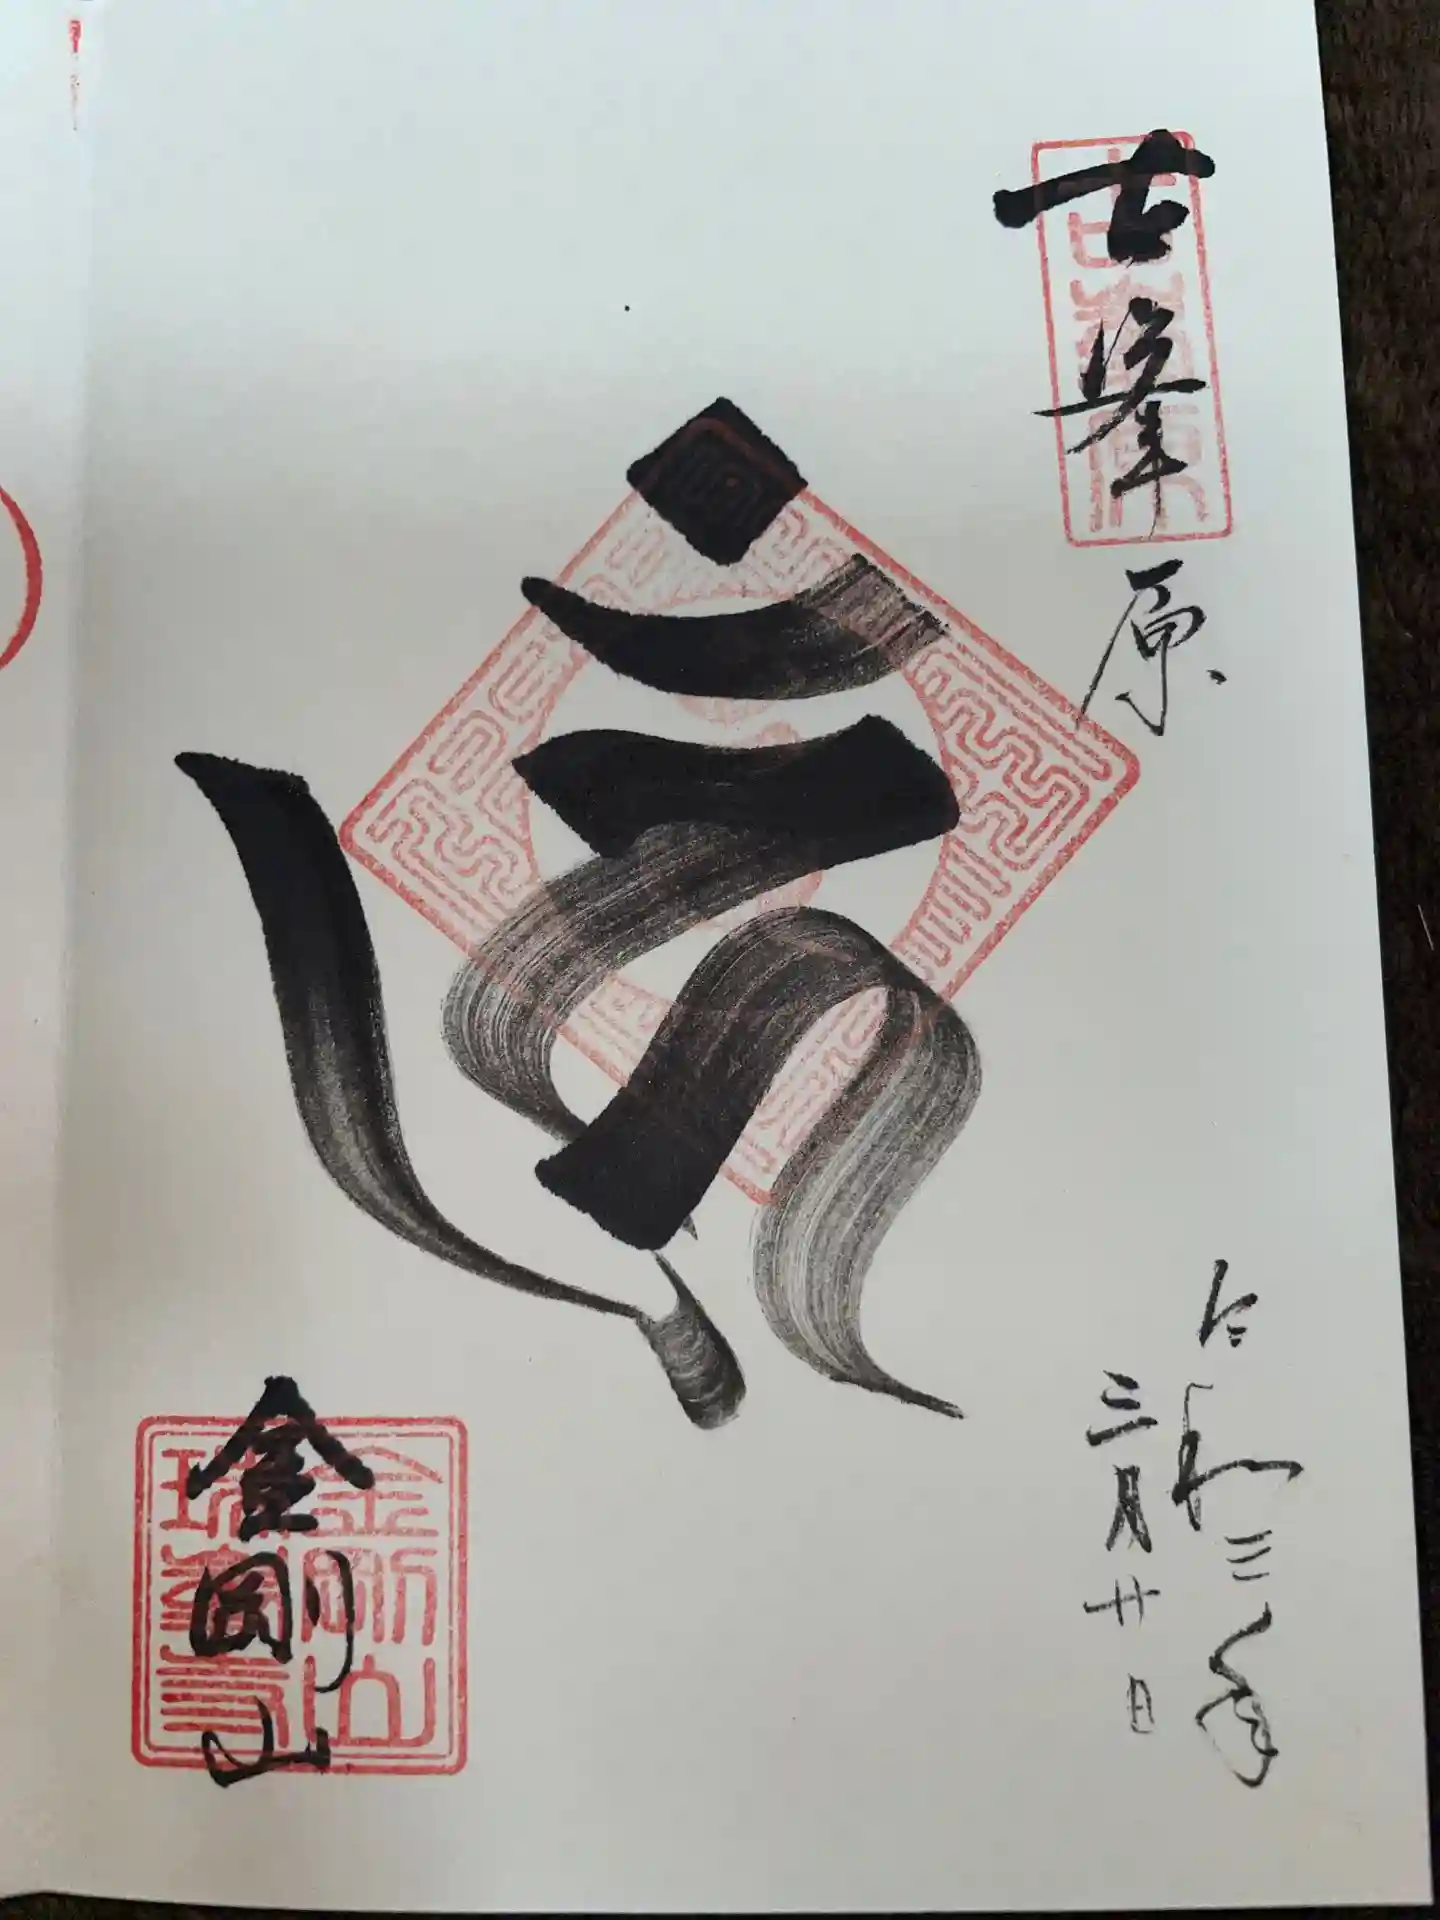 古峯原
古峯原
令和三年
三月廿日
金剛山
金剛山
瑞峯寺